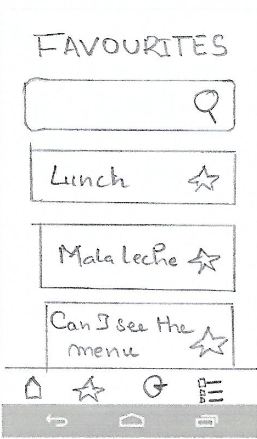 FAVOURITES
Lunch
Mala leche
Can I see the
menu